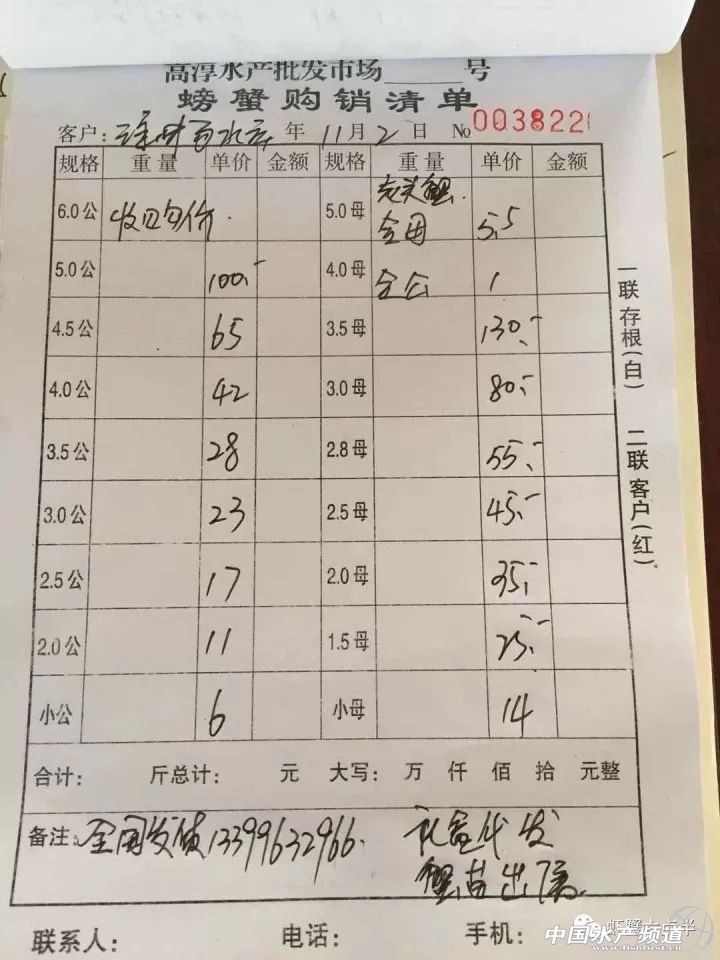 高淳水产批发市场______号
螃蟹购销清单
客户: 年 11月2日 № 0038220
规格 重量 单价 金额 规格 重量 单价 金额
6.0公 5.0母 全母 5.5
5.0公 100.- 4.0母 全公 1
4.5公 65 3.5母 130.-
4.0公 42 3.0母 80.-
3.5公 28 2.8母 55.-
3.0公 23 2.5母 45.-
2.5公 17 2.0母 35.-
2.0公 11 1.5母 25.-
小公 6 小母 14
合计: 斤总计: 元 大写: 万 仟 佰 拾 元整
备注: 全国发货13399632966. 礼盒代发
蟹苗出售
联系人: 电话: 手机:
一联存根(白) 二联客户(红)
虾蟹六点半
中国水产频道
www.fishfirst.cn